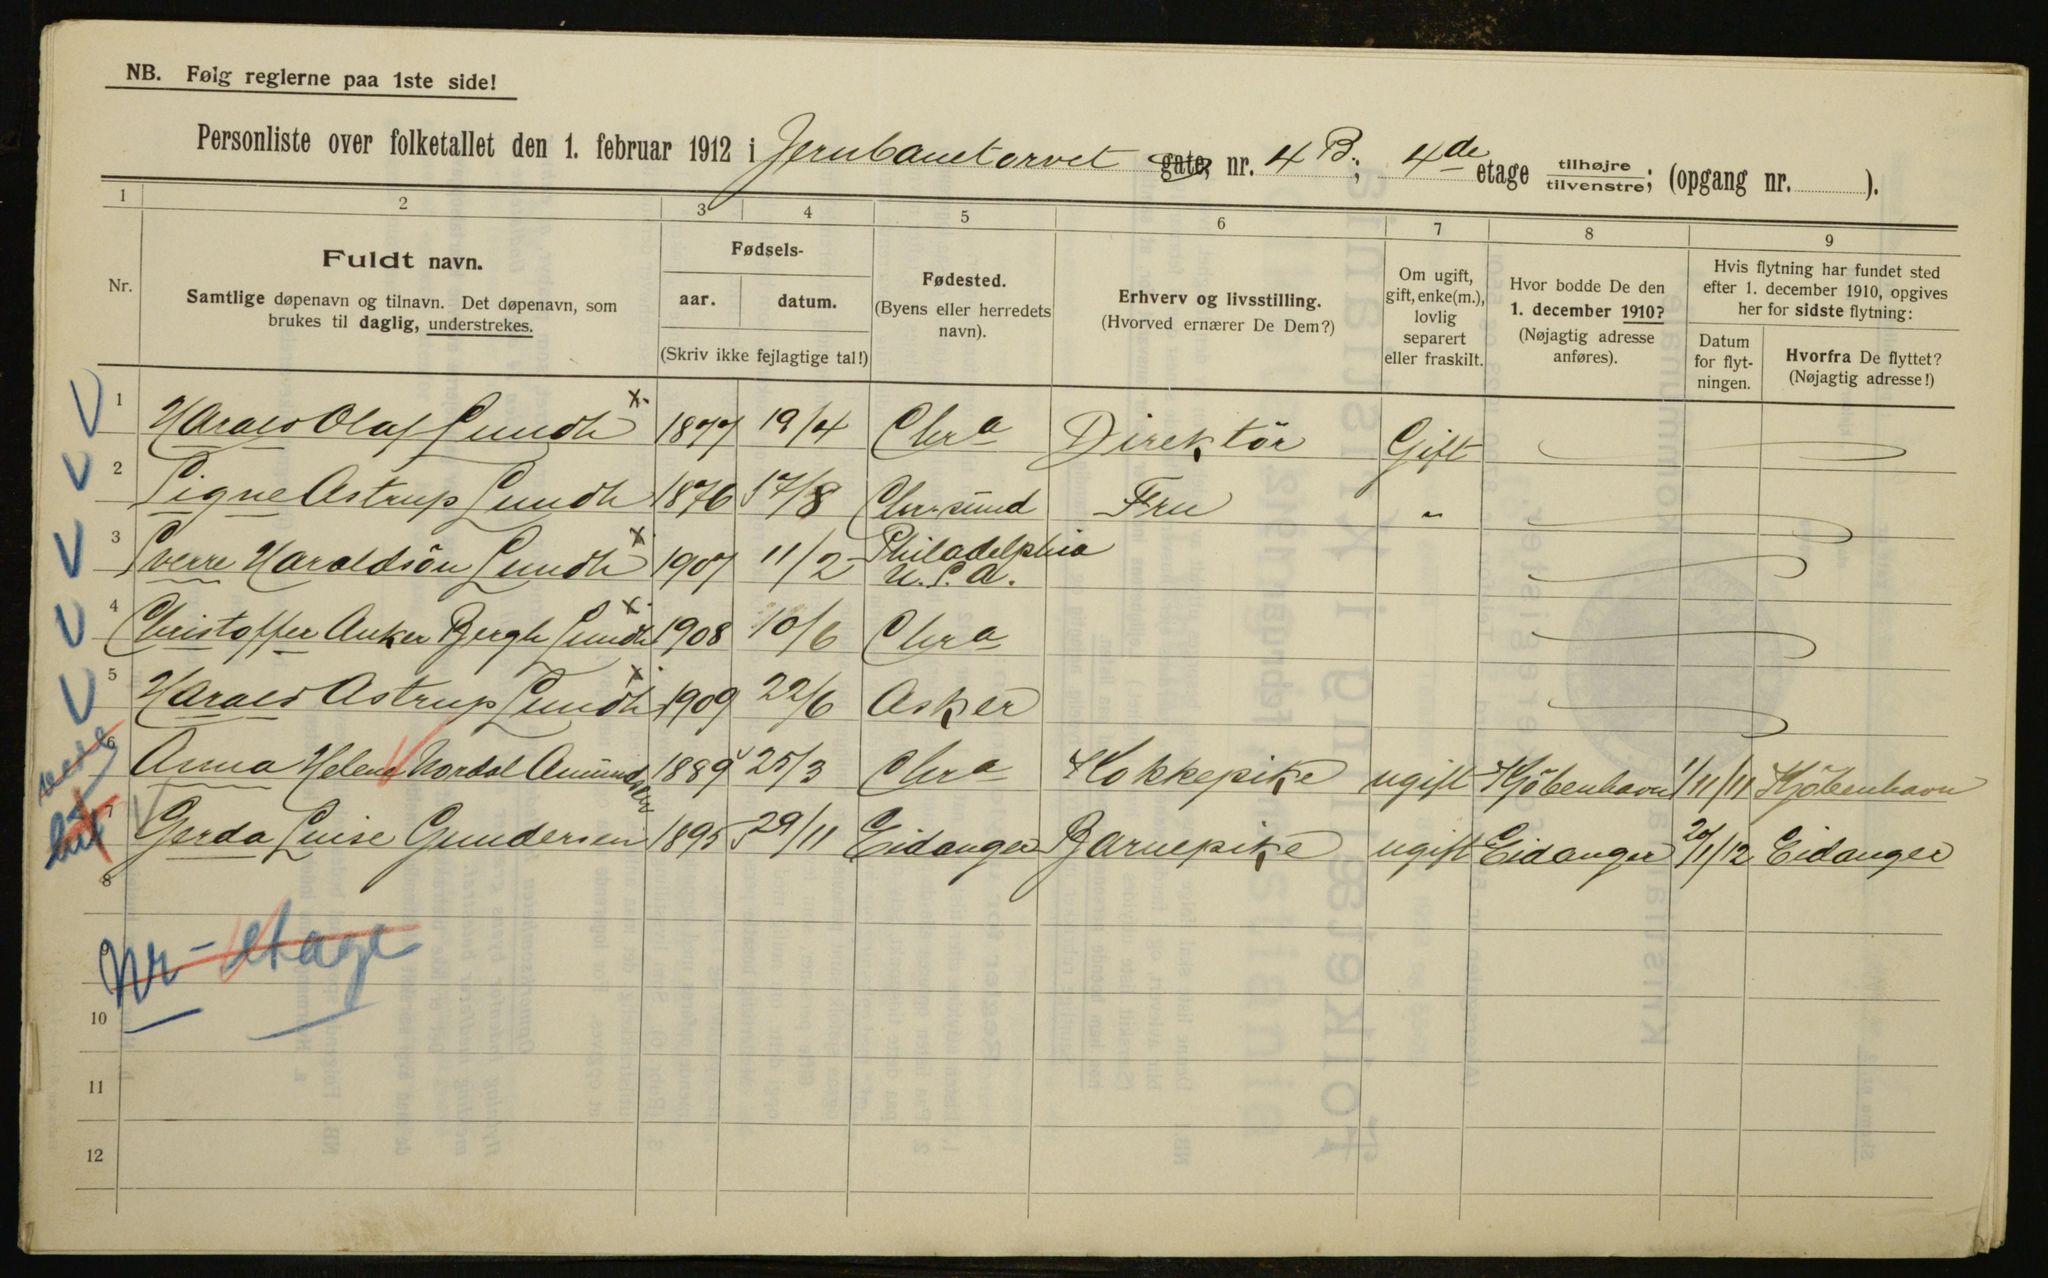 NB. Følg reglerne paa 1ste side!
Personliste over folketallet den 1. februar 1912 i Jernbanetorvet gate, nr. 4 B.; 4de etage tilhøjre tilvenstre; (opgang nr. ).
1 2 3 4 5 6 7 8 9
Nr.
Fuldt navn.
Samtlige døpenavn og tilnavn. Det døpenavn, som
brukes til daglig, understrekes.
Fødsels-
aar. datum.
(Skriv ikke fejlagtige tal!)
Fødested.
(Byens eller herredets
navn).
Erhverv og livsstilling.
(Hvorved ernærer De Dem?)
Om ugift,
gift, enke(m.),
lovlig
separert
eller fraskilt.
Hvor bodde De den
1. december 1910?
(Nøjagtig adresse
anføres).
Hvis flytning har fundet sted
efter 1. december 1910, opgives
her for sidste flytning:
Datum
for flyt-
ningen.
Hvorfra De flyttet?
(Nøjagtig adresse!)
1 Harald Olaf Lundh x. 1877 19/4 Chra Direktör Gift
2 Signe Astrup Lundh 1876 17/8 Chr.sund Fru "
3 Sverre Haraldsön Lundh x. 1907 11/2 Philadelphia U.S.A.
4 Christoffer Anker Bergh Lundh x. 1908 10/6 Chra
5 Harald Astrup Lundh x. 1909 22/6 Asker
6 Anna Helene Nordal Amundsen 1889 25/3 Chra Kokkepike ugift Kjöbenhavn 1/11/11 Kjöbenhavn
7 Gerda Luise Gundersen 1895 29/11 Eidanger Barnepike ugift Eidanger 20/1/12 Eidanger
8
9
Nr - etage
10
11
12